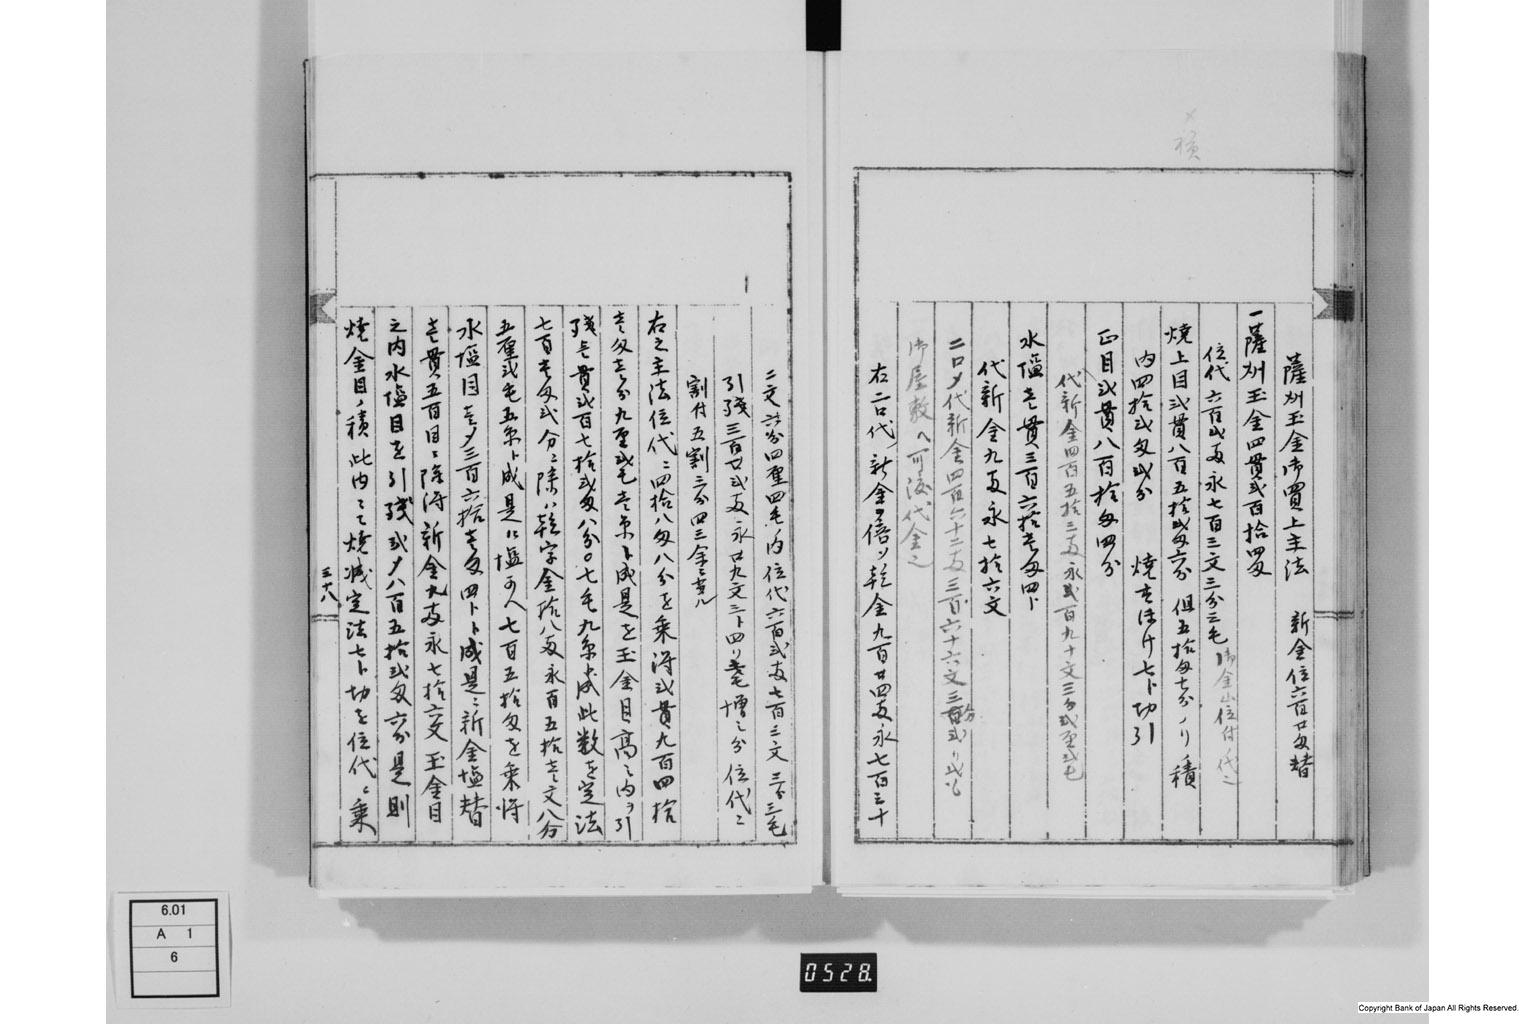 薩刕玉金御買上主法 新金位六百廿匁替
一薩刕玉金四貫弐百拾四匁
位代六百弐両永七百三文三分三毛 御金山位付ノ代之
焼上目弐貫八百五拾弐匁六分 但五拾匁七分ノリ積
内四拾弐匁弐分 焼すほけ七ト切引
正目弐貫八百拾匁四分
代新金四百五拾三両永弐百九十文三分弐厘弐毛
水塩壱貫三百六拾壱匁四ト
代新金九両永七拾六文
二口〆代新金四百六十二両三百六十六文三分
御屋敷へ可渡代金之
右二口代新金倍ノ乾金九百廿四両永七百三十
〆積
二文六分四厘四毛ノ内位代六百弐両七百三文三分三毛
引残三百廿弐両永廿九文三ト四リ壱毛増之分位代ニ
割付五割三分四三余ニ当ル
右之主法位代ニ四拾八匁八分を乗得弐貫九百四拾
壱匁壱分九厘弐毛壱糸ト成是を玉金目高之内ヲ引
残壱貫弐百七拾弐匁八分〇七毛九糸ト成此数を定法
七百壱匁弐分ニ除ハ乾字金拾八両永百五拾壱文八分
五厘弐毛五糸ト成是ニ塩可ヘ七百五拾匁を乗得
水塩目壱〆三百六拾壱匁四ト成是ニ新金塩替
壱貫五百目ニ除得新金九両永七拾六文玉金目
之内水塩目を引残弐〆八百五拾弐匁六分是則
焼金目ノ積此内ニて焼減定法七ト切を位代ニ乗
三十八
6.01
A 1
6
0528.
Copyright Bank of Japan All Rights Reserved.